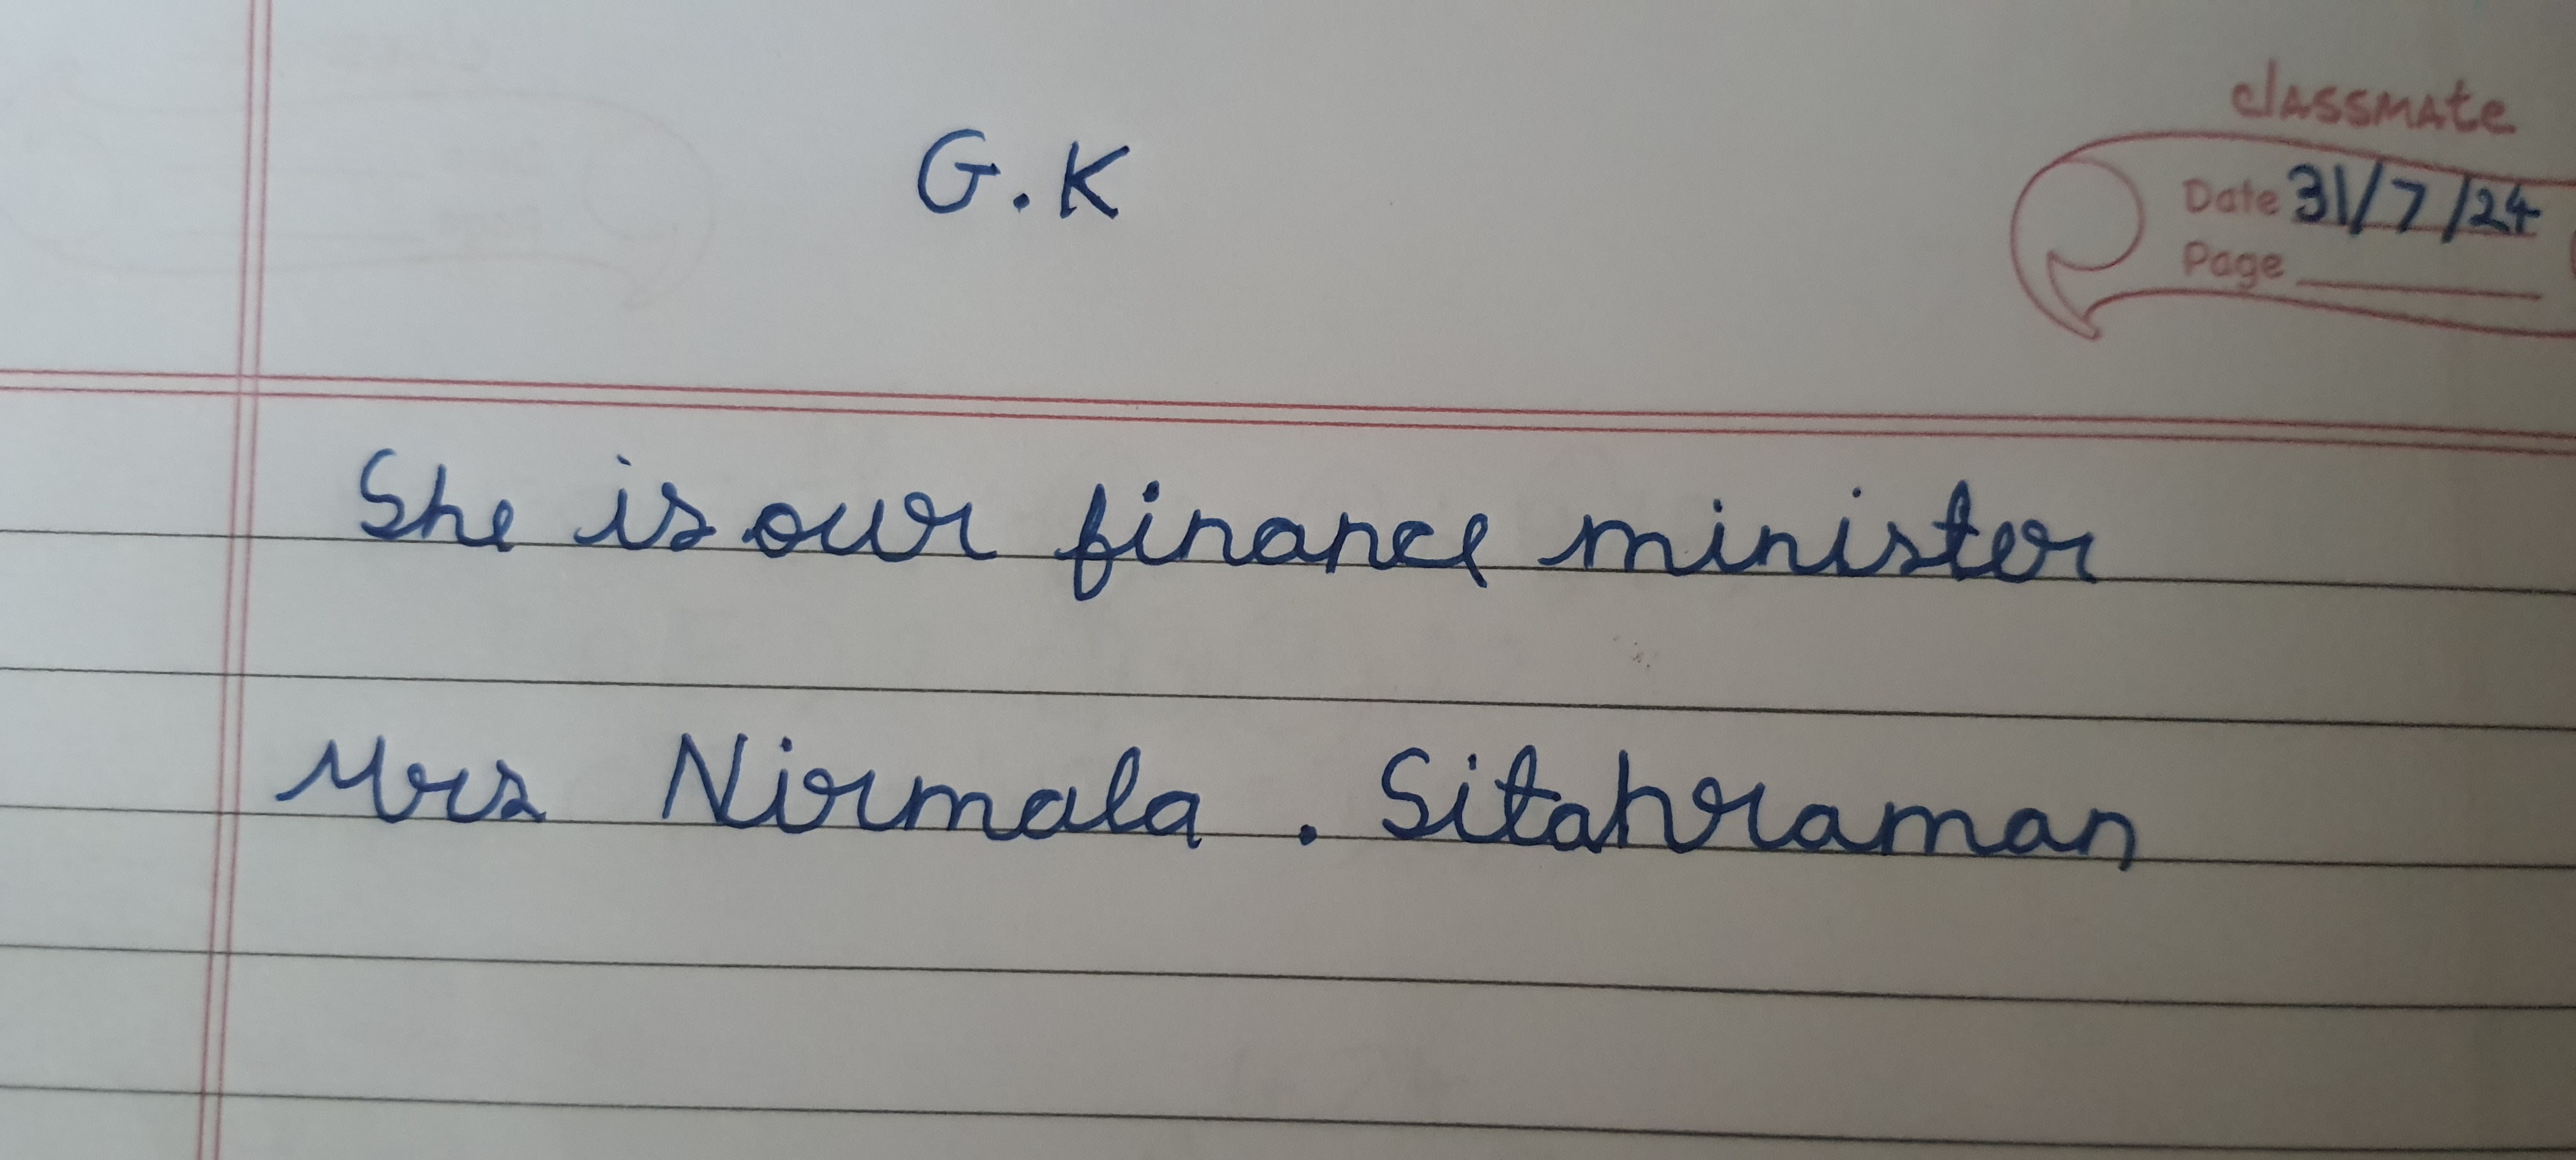 G.K
classmate
Date 31/7/24
Page
She is our finance minister
Mrs Nirmala . Sitahraman